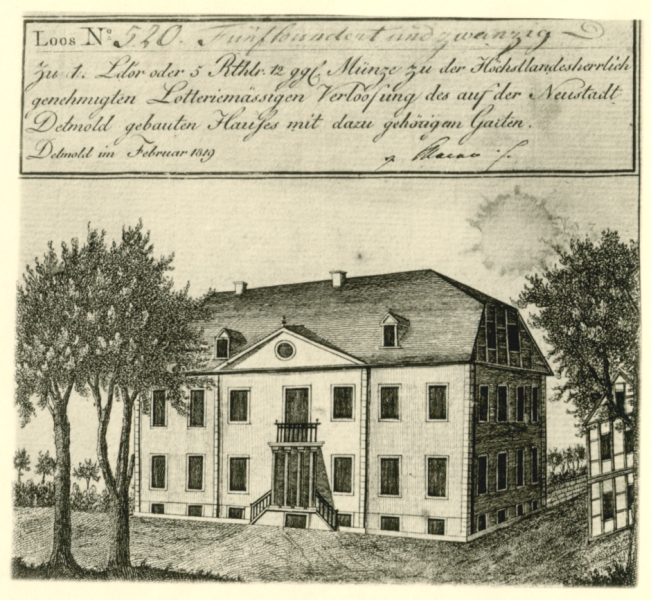 Loos No. 520. Fünfhundert und zwanzig
Zu 1. Ld'or oder 5 Rthlr. 12 ggl. Münze zu der Höchstlandesherrlich
genehmigten Lotteriemässigen Verloosung des auf der Neustadt
Detmold gebauten Hauses mit dazu gehörigem Garten.
Detmold im Februar 1819